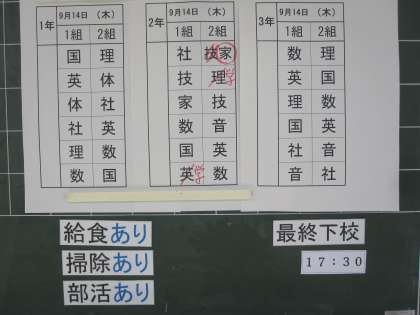 1年 9月14日 (木)
1組 2組
国 理
英 体
体 社
社 英
理 数
数 国
2年 9月14日 (木)
1組 2組
社 技家
技 理学
家 技
数 音
国 英
英学 数
3年 9月14日 (木)
1組 2組
数 理
英 国
理 数
国 英
社 音
音 社
給食あり
掃除あり
部活あり
最終下校
17:30